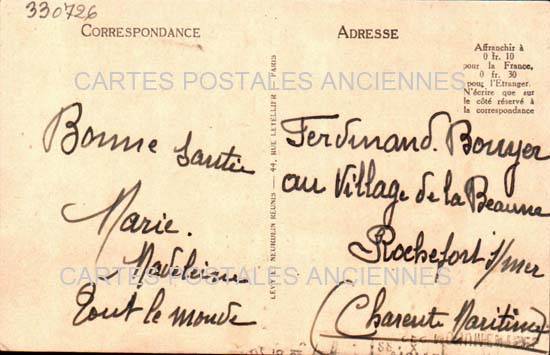 330726
CORRESPONDANCE
ADRESSE
Affranchir à
0 fr. 10
pour la France,
0 fr. 30
pour l'Etranger.
N'écrire que sur
le côté réservé à
la correspondance
CARTES POSTALES ANCIENNES
Bonne Santée
Marie.
Madeleine
Tout le monde
LEVY ET NEURDEIN RÉUNIS — 44, RUE LETELLIER — PARIS
Ferdinand. Bouyer
au Village de la Beaune
Rochefort s/mer
(Charente Maritime)
CARTES POSTALES ANCIENNES